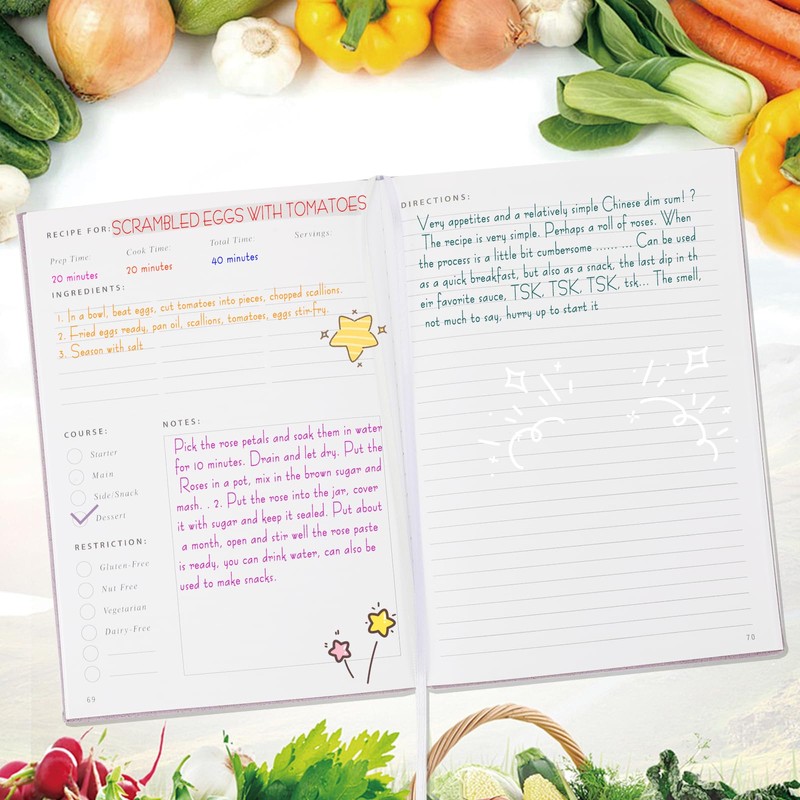 RECIPE FOR: SCRAMBLED EGGS WITH TOMATOES
Prep Time: Cook Time: Total Time: Servings:
20 minutes 20 minutes 40 minutes
INGREDIENTS:
1. In a bowl, beat eggs, cut tomatoes into pieces, chopped scallions.
2. Fried eggs ready, pan oil, scallions, tomatoes, eggs stir-fry.
3. Season with salt
COURSE:
Starter
Main
Side/Snack
Dessert
RESTRICTION:
Gluten-Free
Nut Free
Vegetarian
Dairy-Free
69
NOTES:
Pick the rose petals and soak them in water
for 10 minutes. Drain and let dry. Put the
Roses in a pot, mix in the brown sugar and
mash. . 2. Put the rose into the jar, cover
it with sugar and keep it sealed. Put about
a month, open and stir well the rose paste
is ready, you can drink water, can also be
used to make snacks.
DIRECTIONS:
Very appetites and a relatively simple Chinese dim sum! ?
The recipe is very simple. Perhaps a roll of roses. When
the process is a little bit cumbersome ...... ... Can be used
as a quick breakfast, but also as a snack, the last dip in th
eir favorite sauce, TSK, TSK, TSK, tsk... The smell,
not much to say, hurry up to start it
70